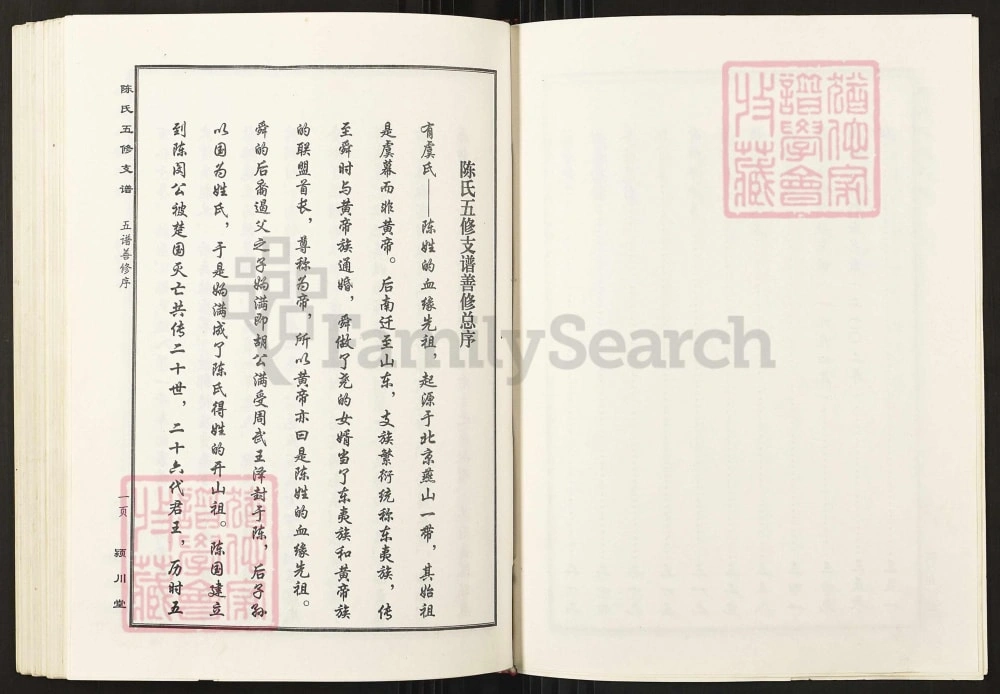 陈氏五修支谱善修总序
有虞氏——陈姓的血缘先祖，起源于北京燕山一带，其始祖
是虞幕而非黄帝。后南迁至山东，支族繁衍统称东夷族，传
至舜时与黄帝族通婚，舜做了尧的女婿当了东夷族和黄帝族
的联盟首长，尊称为帝，所以黄帝亦曰是陈姓的血缘先祖。
舜的后裔遏父之子妫满即胡公满受周武王泽封于陈，后子孙
以国为姓氏，于是妫满成了陈氏得姓的开山祖。陈国建立
到陈闵公被楚国灭亡共传二十世，二十六代君王，历时五
陈氏五修支谱 五谱善修序 一页 颍川堂
FamilySearch
谱学会
收藏
谱学会
收藏